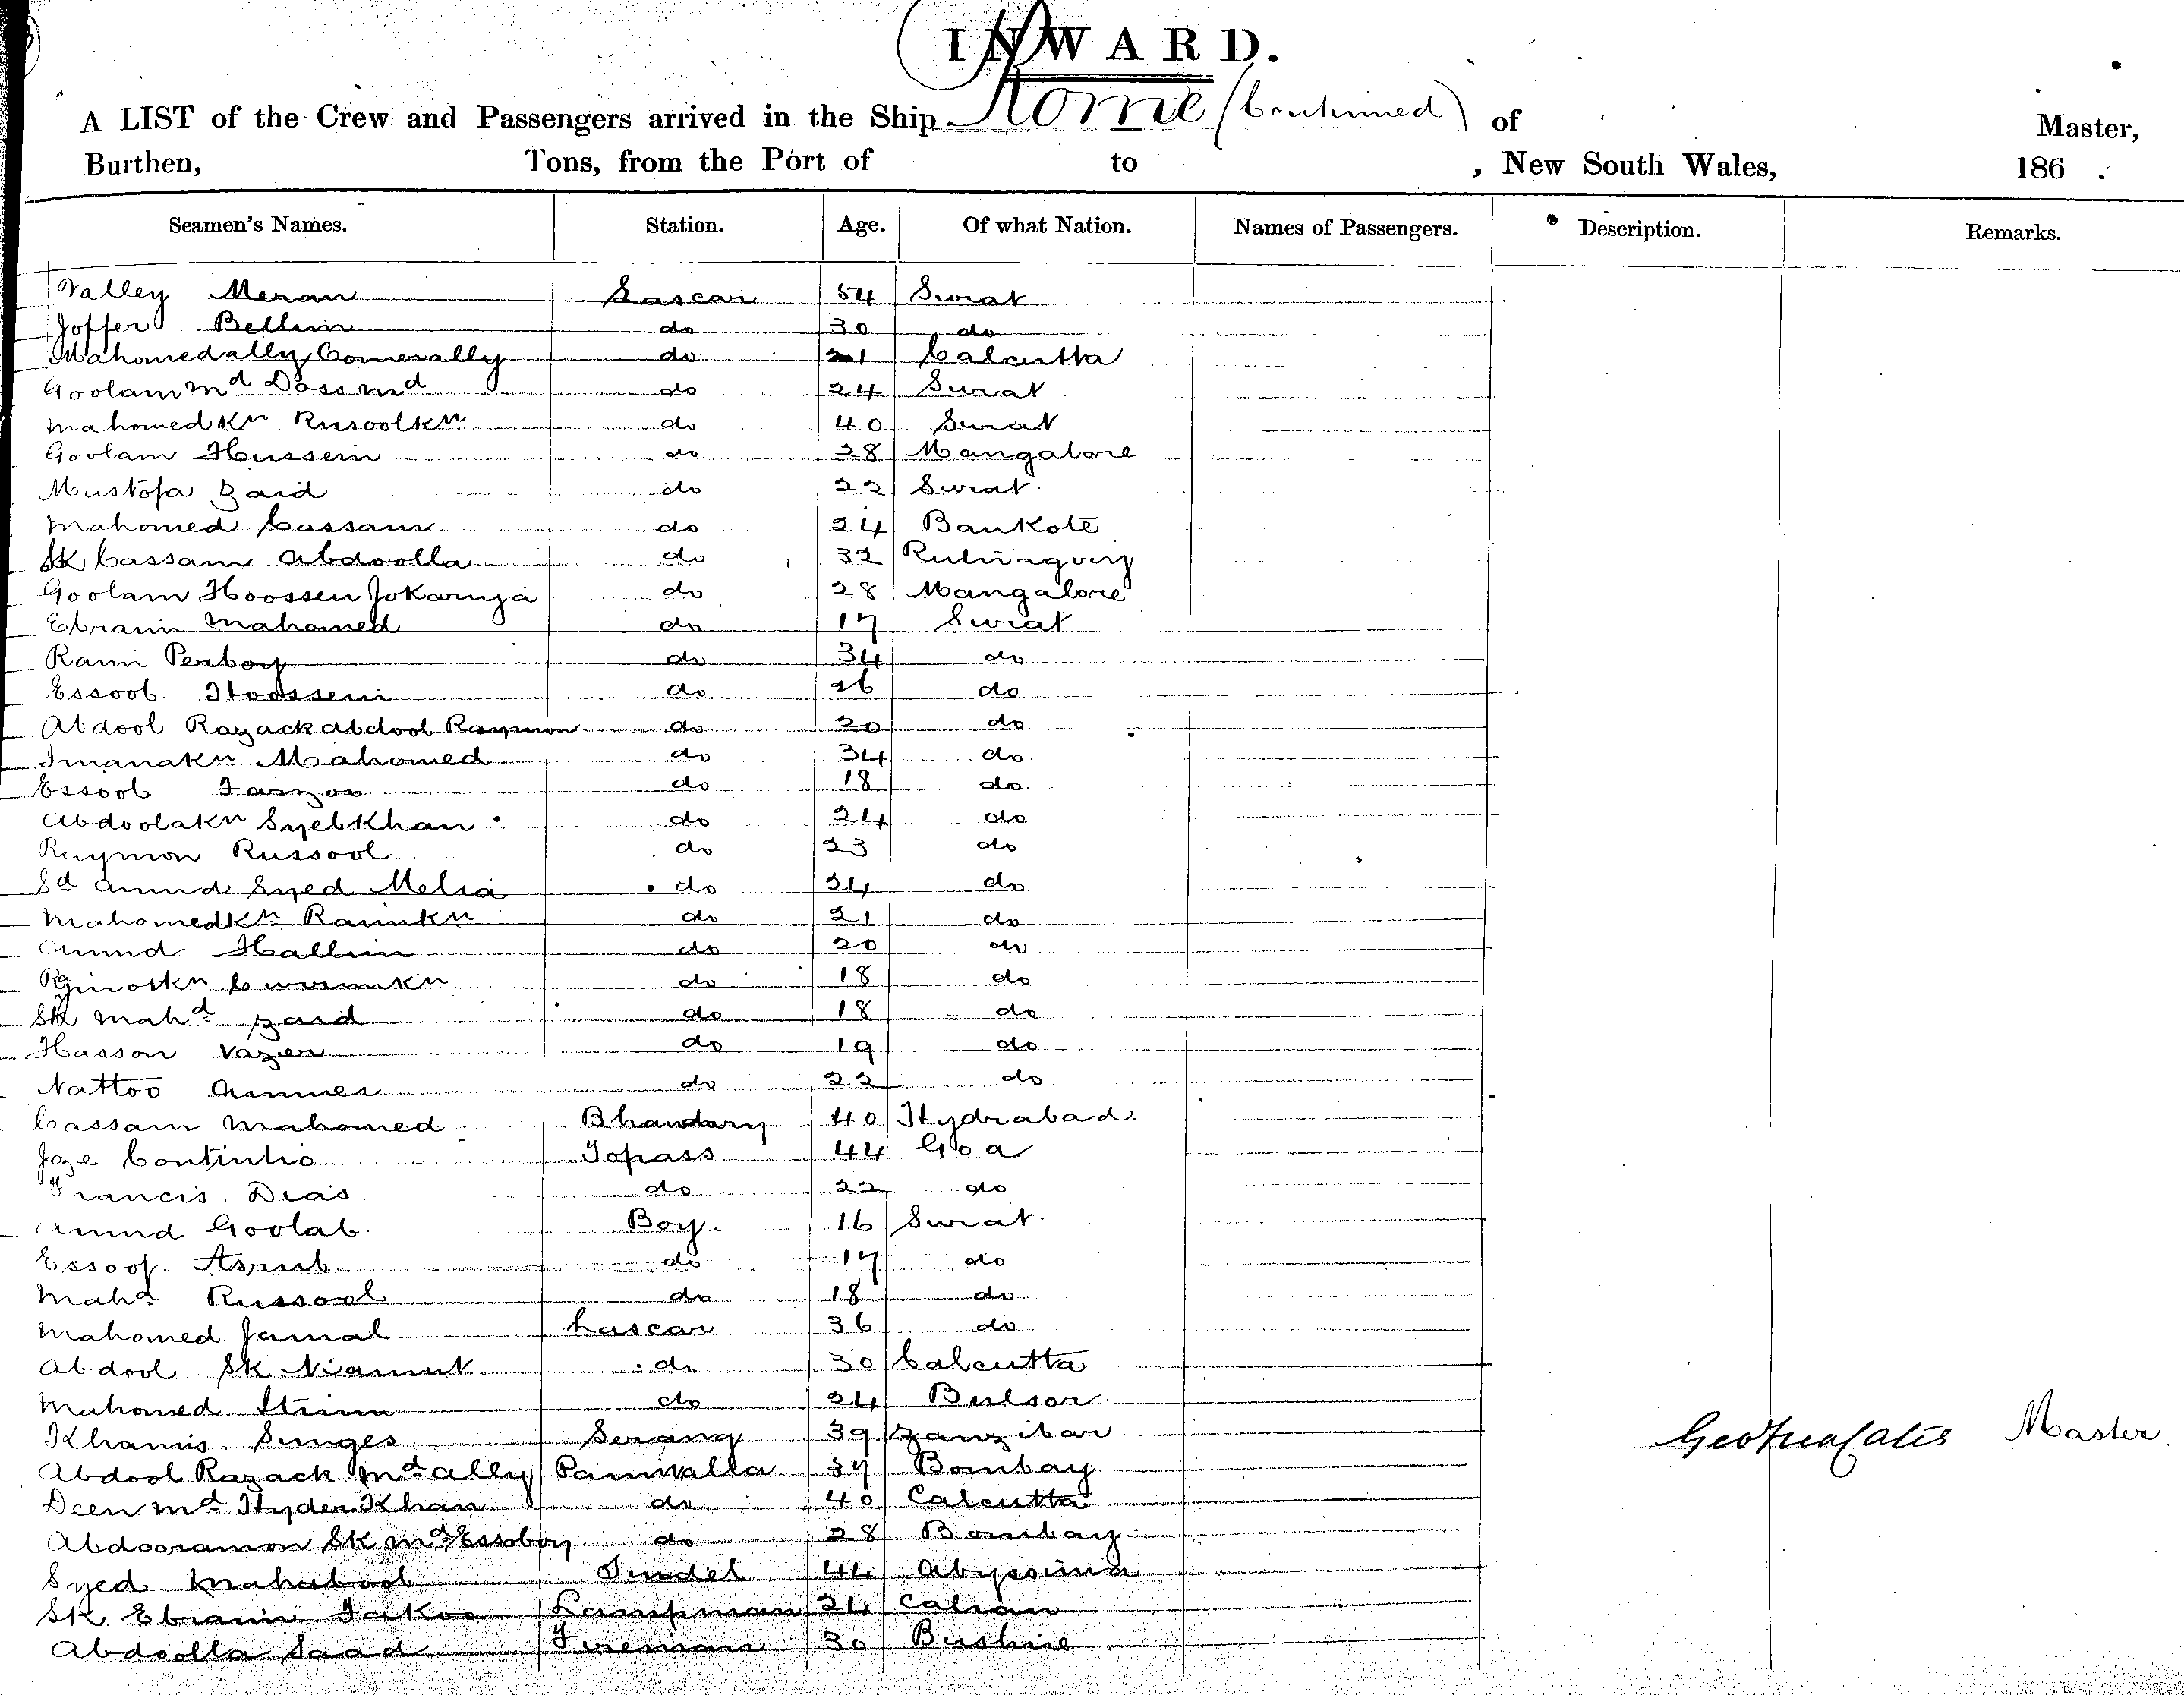 INWARD.
A LIST of the Crew and Passengers arrived in the Ship Rome (Continued) of Master,
Burthen, Tons, from the Port of to , New South Wales, 186 .
Seamen's Names. Station. Age. Of what Nation. Names of Passengers. Description. Remarks.
Valley Meran Lascar 54 Surat
Joffer Bellim do 30 do
Mahomedally Comerally do 21 Calcutta
Goolam Md Doss md do 24 Surat
Mahomed Kn Russoolkn do 40 Surat
Goolam Hussein do 28 Mangalore
Mustofa Zaid do 22 Surat
Mahomed Cassam do 24 Bankote
Sk Cassam Abdoolla do 32 Rutnagery
Goolam Hoossen do 28 Mangalore
Ebraim Mahomed do 17 Surat
Ram Perboy do 34 do
Essoob Hoossein do 26 do
Abdool Razack Abdool Raymon do 20 do
Imanakn Mahomed do 34 do
Essoob do 18 do
Abdoolakn Syeb Khan do 24 do
Ruymon Russool do 23 do
Sd Amud Syed Melia do 24 do
Mahomedkn Ramkn do 21 do
Amud Hallim do 20 do
do 18 do
Sk Mahd Zaid do 18 do
Hasson Vazier do 19 do
Nattoo Ammer do 22 do
Cassam Mahomed Bhandary 40 Hydrabad
Joze Continho Topass 44 Goa
Francis Dias do 22 do
Amud Goolab Boy 16 Surat
Essoof do 17 do
Mahd Russool do 18 do
Mahomed Jamal Lascar 36 do
Abdool Sk Niamut do 30 Calcutta
Mahomed do 24 Bulsor
Khamis Serang 39 Zanzibar
Abdool Razack Md ally Paniwalla 37 Bombay
Deen Md Hyder Khan do 40 Calcutta
Abdooramon Sk Md Essoboy do 28 Bombay
Syed Mahaboob Tindel 44 Abyssinia
Sk Ebraim Lampman 24 Calian
Abdoolla Saad Fireman 30 Bushire
Master